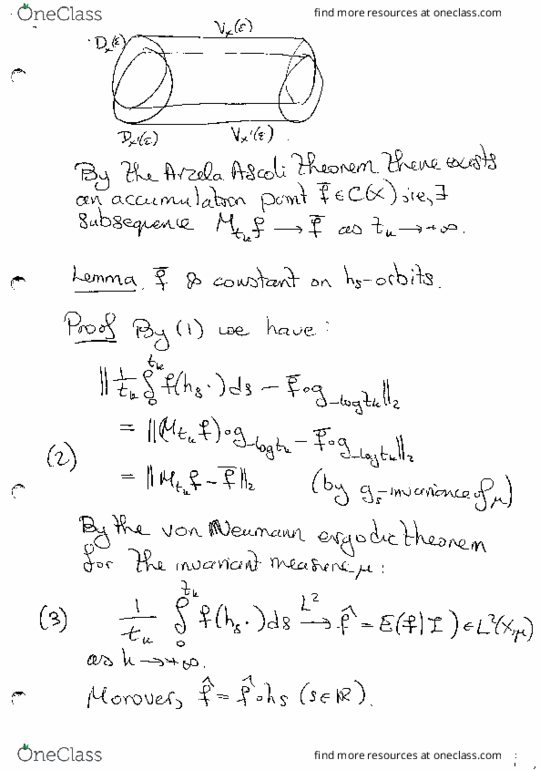 OneClass find more resources at oneclass.com
V_x(ε)
D_x(ε)
D_x'(ε) V_x'(ε)
By the Arzela Ascoli theorem there exists
an accumulation point f̄ ∈ C(X), i.e., ∃
subsequence M_{t_k} f → f̄ as t_k → +∞.
Lemma. f̄ is constant on h_s-orbits.
Proof By (1) we have:
‖ 1/t_k ∫_0^{t_k} f(h_s ·) ds − f̄∘g_{-log t_k} ‖_2
= ‖(M_{t_k} f)∘g_{-log t_k} − f̄∘g_{-log t_k}‖_2
(2) = ‖M_{t_k} f − f̄‖_2 (by g_s-invariance of μ)
By the von Neumann ergodic theorem
for the invariant measure μ:
(3) 1/t_k ∫_0^{t_k} f(h_s ·) ds →^{L²} f̂ = E(f|I) ∈ L²(X,μ)
as k → +∞.
Morover, f̂ = f̂∘h_s (s∈ℝ).
OneClass find more resources at oneclass.com